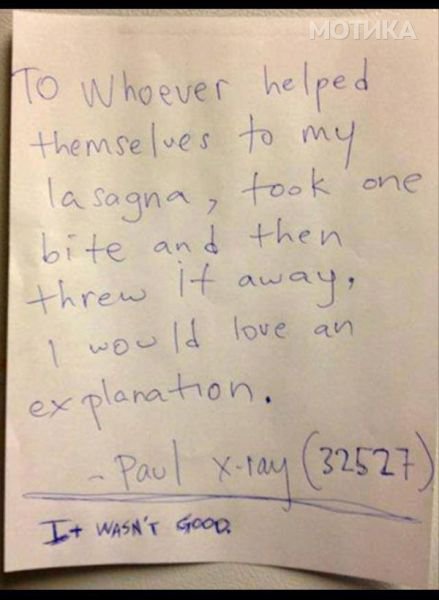 МОТИКА
To Whoever helped
themselves to my
lasagna, took one
bite and then
threw it away,
I would love an
explanation.
- Paul x-ray (32527)
It WASN'T GOOD.